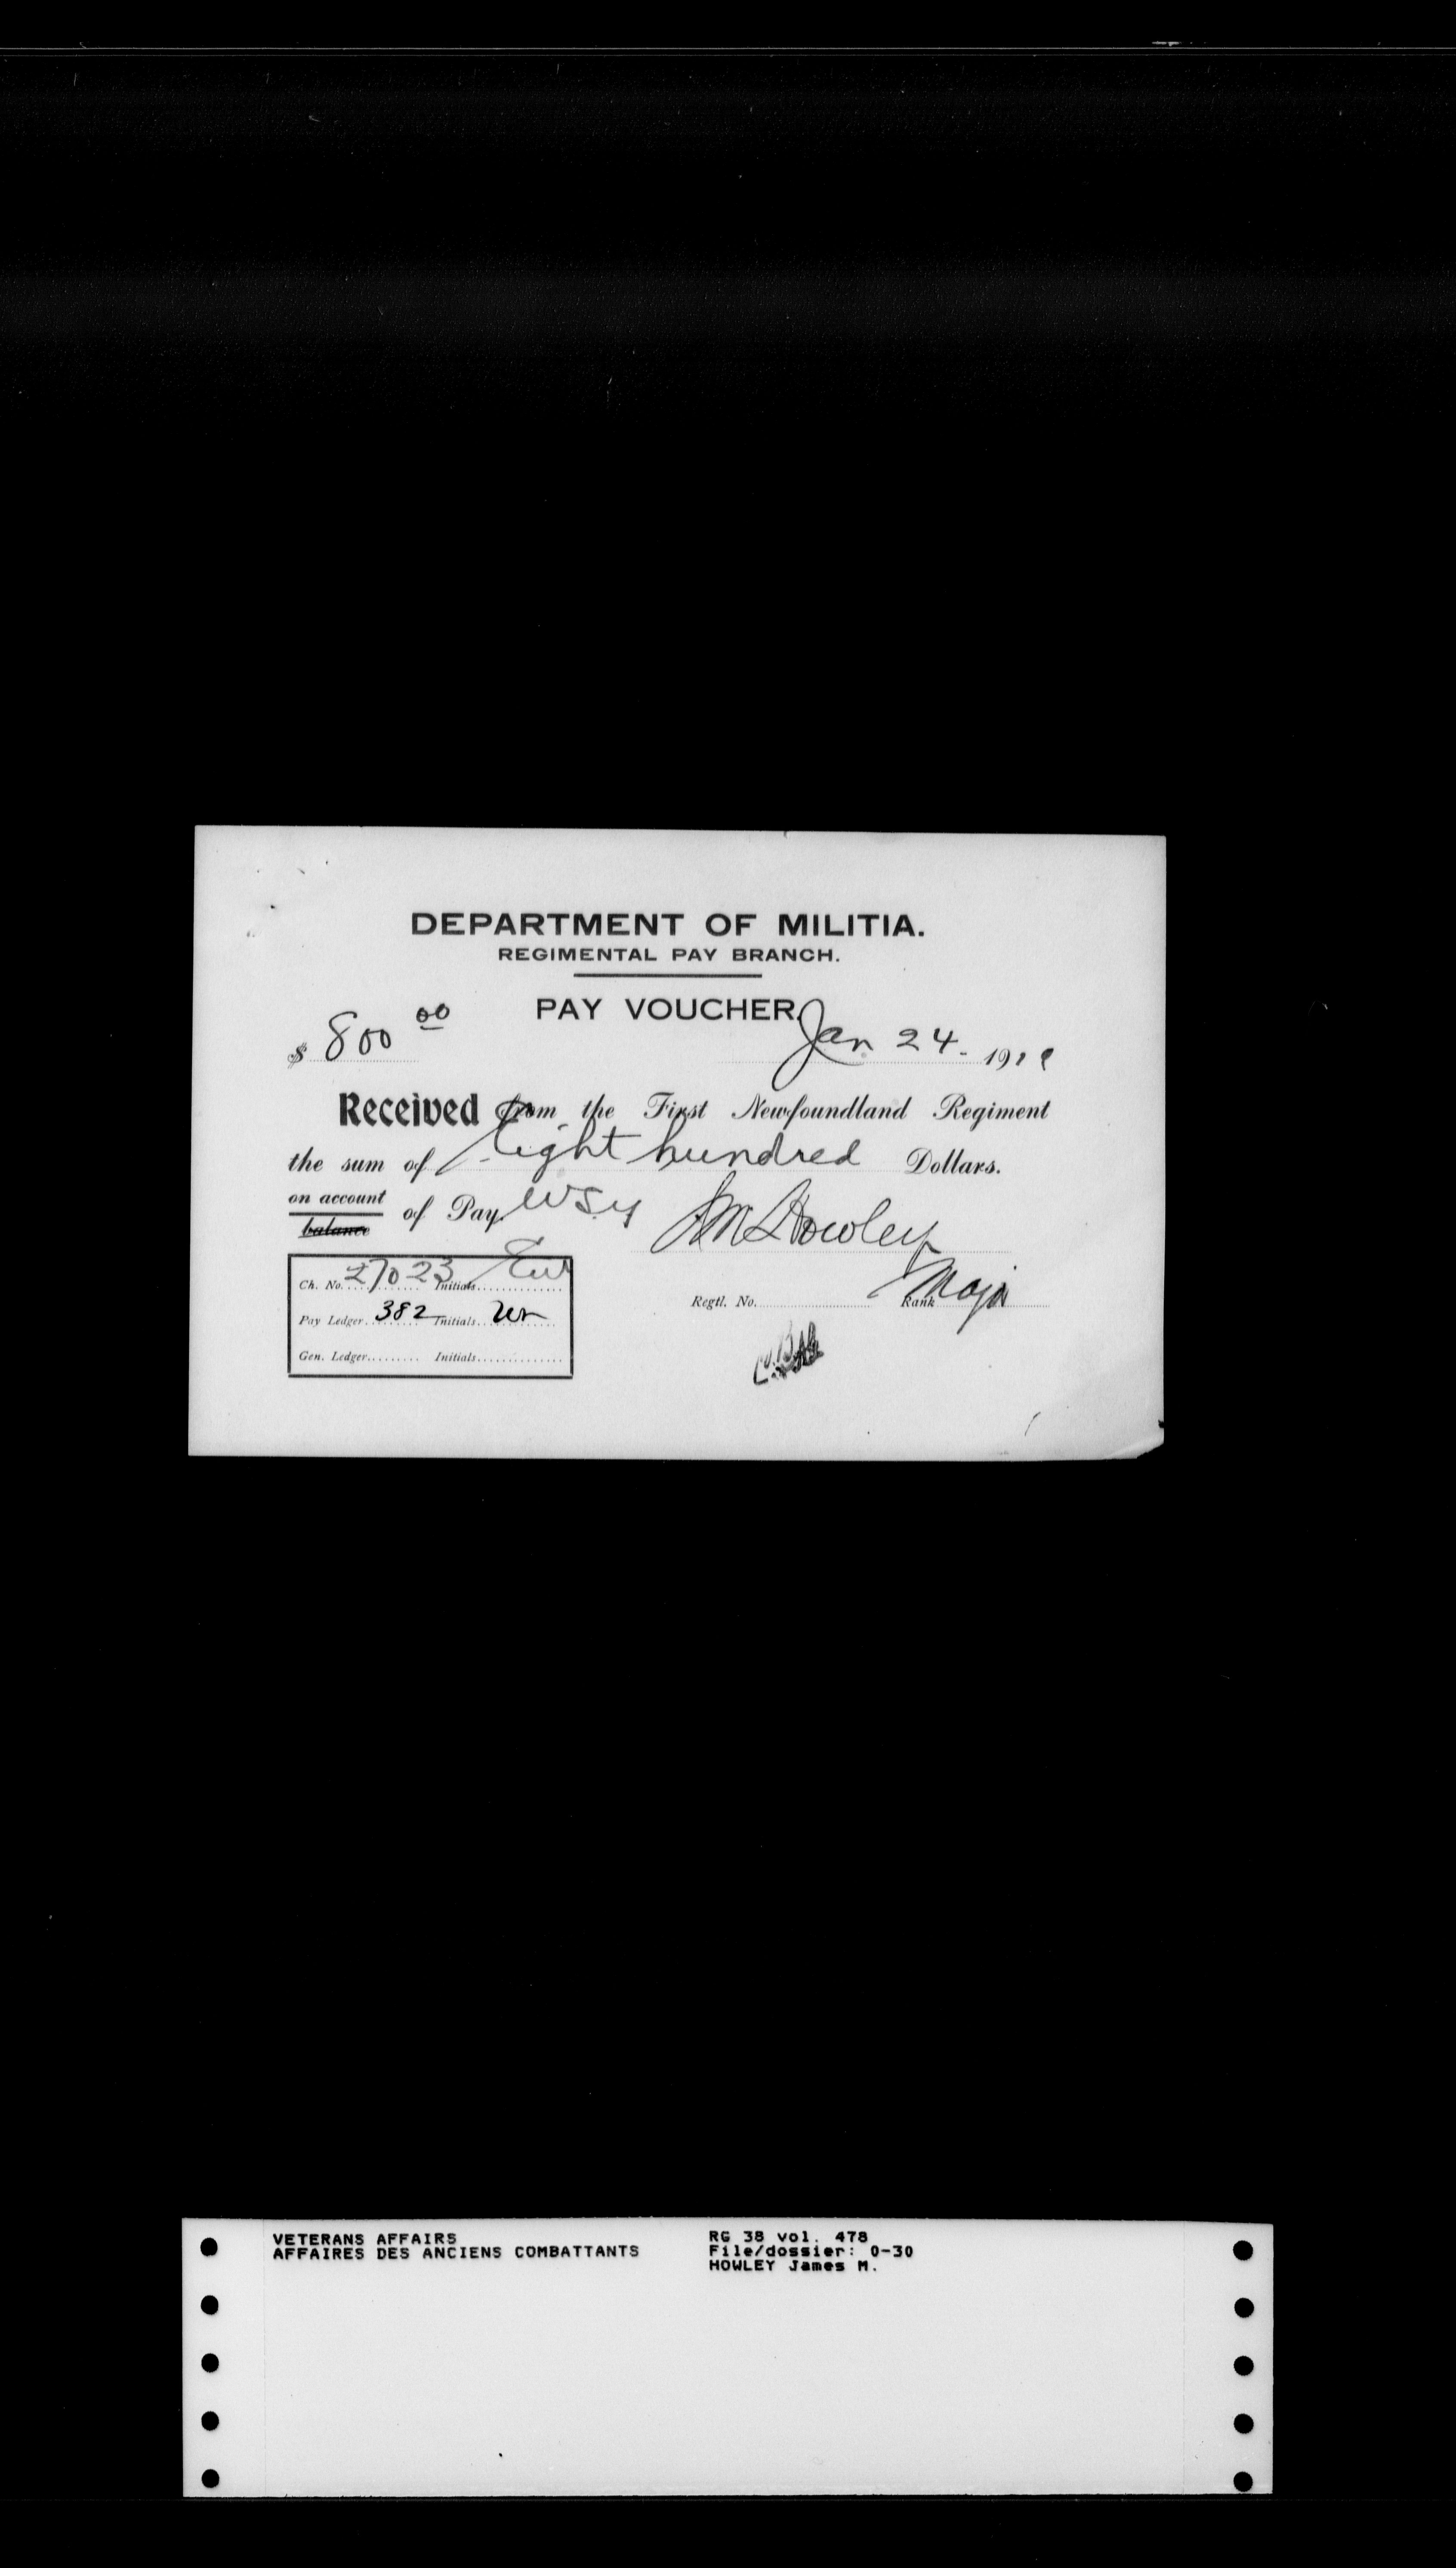 DEPARTMENT OF MILITIA.
REGIMENTAL PAY BRANCH.
PAY VOUCHER.
$ 800 00 Jan 24. 191
Received from the First Newfoundland Regiment
the sum of Eight hundred Dollars.
on account
balance
of Pay WSG JM Howley
Ch. No. 27023 Initials
Regtl. No. Rank Major
Pay Ledger 382 Initials
Gen. Ledger Initials
VETERANS AFFAIRS
AFFAIRES DES ANCIENS COMBATTANTS
RG 38 vol. 478
File/dossier: 0-30
HOWLEY James M.